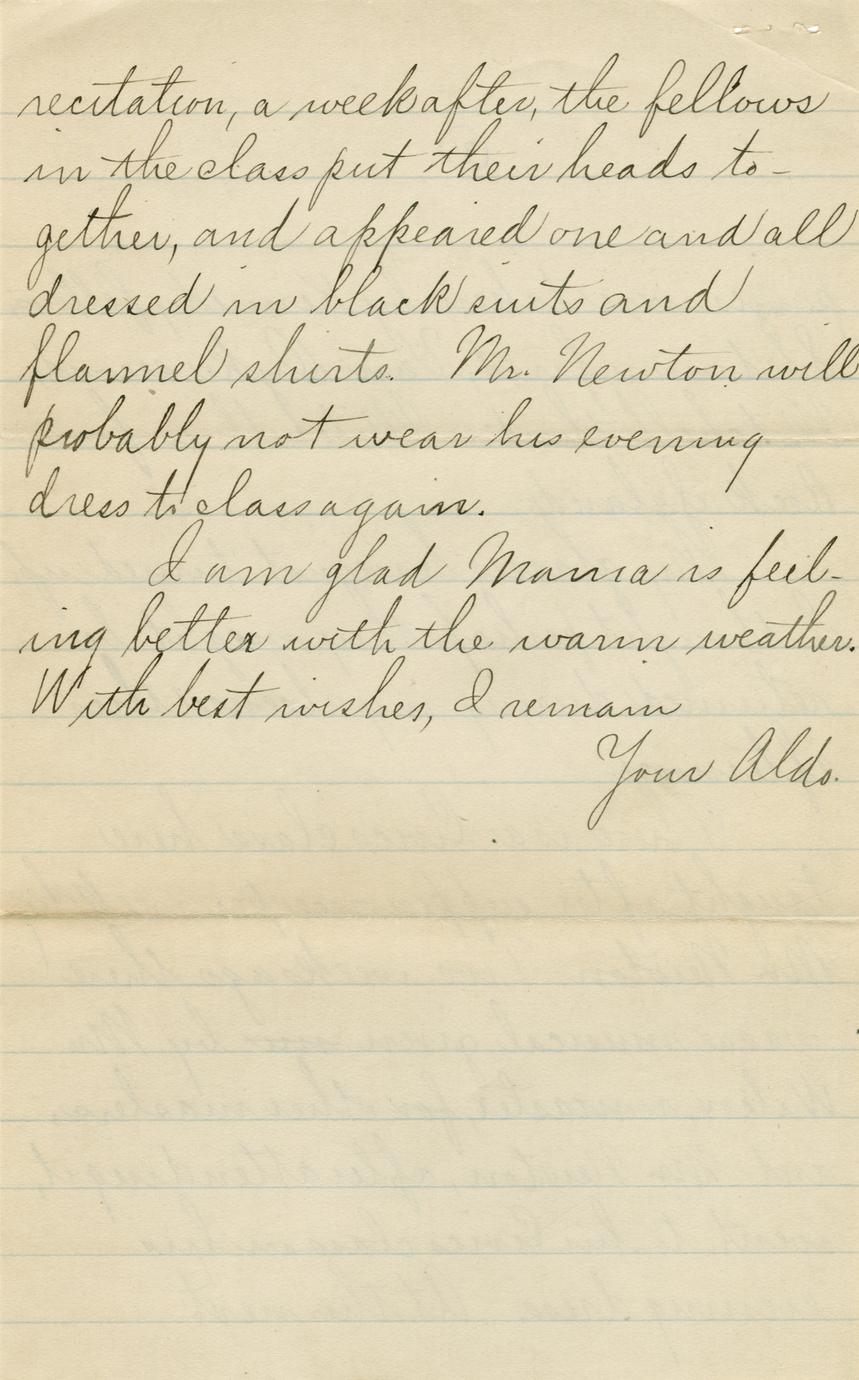 recitation, a week after, the fellows
in the class put their heads to-
gether, and appeared one and all
dressed in black suits and
flannel shirts. Mr. Newton will
probably not wear his evening
dress to class again.
I am glad Mama is feel-
ing better with the warm weather.
With best wishes, I remain
Your Aldo.